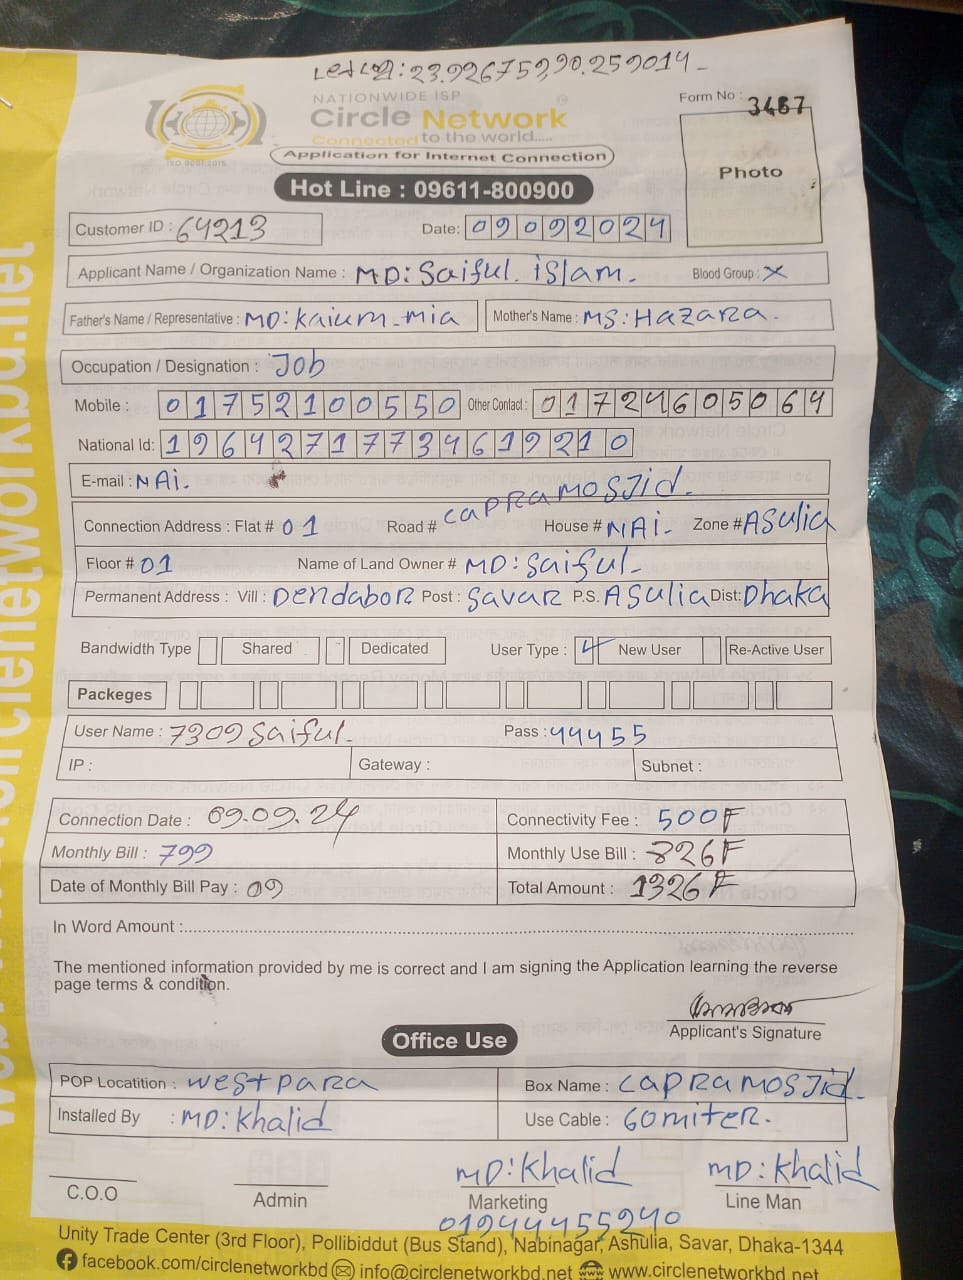 NATIONWIDE ISP
Circle Network
Connected to the world.....
Application for Internet Connection
ISO 9001:2015
Hot Line : 09611-800900
Form No : 3467
Photo
Customer ID : 64213
Date: 09092024
Applicant Name / Organization Name : MD: Saiful. islam. Blood Group : X
Father's Name / Representative : MD: Kaium mia Mother's Name : MS: Hazara.
Occupation / Designation : Job
Mobile : 01752100550 Other Contact : 01724605064
National Id: 19642717734619210
E-mail : NAi.
Connection Address : Flat # 01 Road # CAPRAMOSJid. House # NAi. Zone # ASulia
Floor # 01 Name of Land Owner # MD: Saiful.
Permanent Address : Vill : Dendabor Post : Savar P.S. ASulia Dist: Dhaka
Bandwidth Type Shared Dedicated User Type : New User Re-Active User
Packeges
User Name : 7309 Saiful. Pass : 44455
IP : Gateway : Subnet :
Connection Date : 09.09.24 Connectivity Fee : 500
Monthly Bill : 799 Monthly Use Bill : 826
Date of Monthly Bill Pay : 09 Total Amount : 1326
In Word Amount :
The mentioned information provided by me is correct and I am signing the Application learning the reverse
page terms & condition.
Applicant's Signature
Office Use
POP Locatition : westpara Box Name : CAPRAMOSJid.
Installed By : MD: Khalid Use Cable : 60miter.
MD: Khalid MD: Khalid
C.O.O Admin Marketing Line Man
01944455240
Unity Trade Center (3rd Floor), Pollibiddut (Bus Stand), Nabinagar, Ashulia, Savar, Dhaka-1344
facebook.com/circlenetworkbd info@circlenetworkbd.net www.circlenetworkbd.net